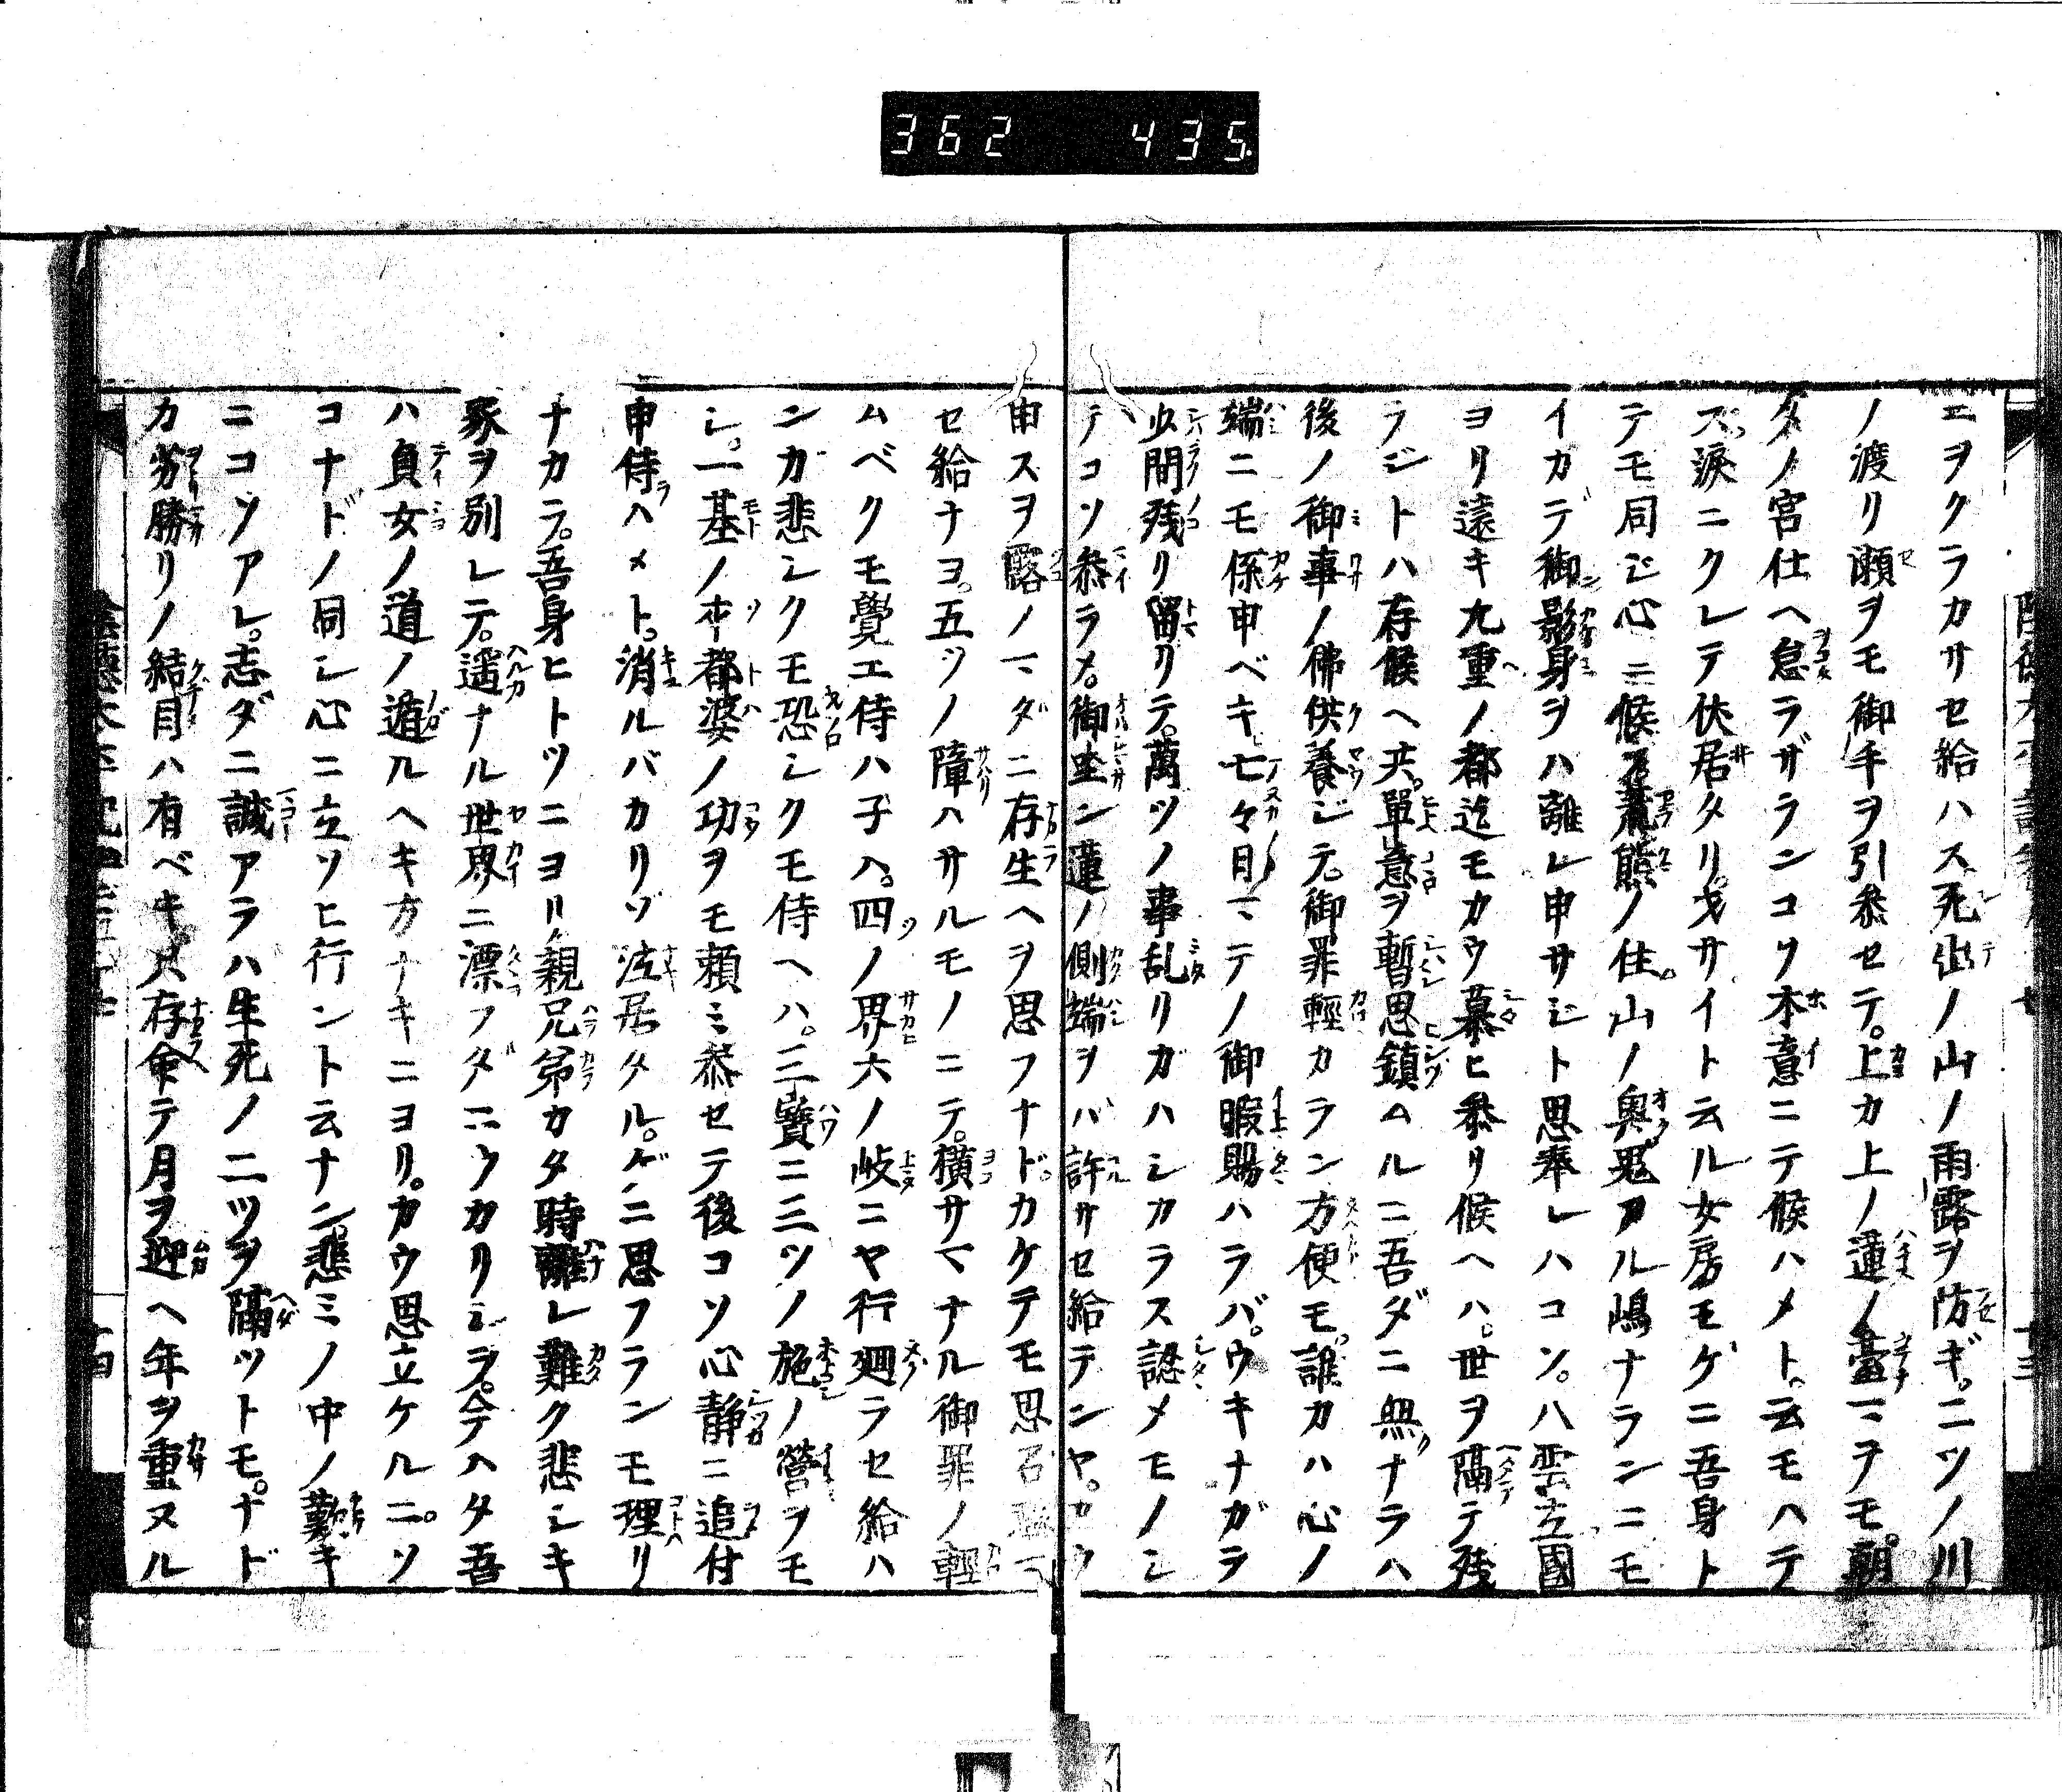 362 435
エヲクラカサセ給ハス死出ノ山ノ雨露ヲ防ギ。二ツノ川
ノ渡リ瀬ヲモ御手ヲ引参セテ。上カ上ノ蓮ノ臺マヲモ。朝
夕ノ宮仕ヘ怠ラザランコソ本意ニテ候ハメト。云モハテ
ス。涙ニクレテ伏居タリ。戈サイト云ル女房モゲニ吾身ト
テモ同ジ心ニ候。荒熊ノ住。山ノ奥鬼アル嶋ナランニモ
イカデ御影身ヲハ離レ申サジト思奉レハコソ。八雲立國
ヨリ遠キ九重ノ都迄モカウ慕ヒ参リ候ヘハ。世ヲ隔テ残
ラジトハ存候ヘ共。單意ヲ暫思鎮ムルニ吾ダニ無ナラハ
後ノ御事ノ佛供養ジテ御罪輕カラン方便モ。誰カハ心ノ
端ニモ係申ベキ七々日マテノ御暇賜ハラバ。ウキナガラ
少間残リ留リテ。萬ツノ事乱リガハシカラス認メモノシ
テコソ参ラメ。御坐ン蓮ノ側端ヲバ許サセ給テンヤ。カウ
申スヲ露ノマダニ存生ヘヲ思フナド。カケテモ思召
セ給ナヨ。五ツノ障ハサルモノニテ。横サマナル御罪ノ輕
ムベクモ覺エ侍ハ子ハ。四ノ界六ノ岐ニヤ行廻ラセ給ハ
ンカ悲シクモ恐シクモ侍ヘハ。三寳ニ三ツノ施ノ營ヲモ
シ。一基ノ卒都婆ノ功ヲモ頼ミ参セテ後コソ心静ニ追付
申侍ヘメト。消ルバカリゾ泣居タル。ゲニ思フランモ理リ
ナカラ。吾身ヒトツニヨリ親兄弟カタ時離レ難ク悲シキ
豕ヲ別レテ。遥ナル世界ニ漂フダニウカリシヲ。今ハタ吾
ハ貞女ノ道ノ遁ルヘキ方ナキニヨリ。カウ思立ケルニ。ソ
コナドノ同シ心ニ立ソヒ行ント云ナン悲ミノ中ノ歎キ
ニコソアレ。志ダニ誠アラハ生死ノ二ツヲ隔ツトモ。ナド
カ劣勝リノ結目ハ有ベキ只存命テ月ヲ迎ヘ年ヲ重ヌル